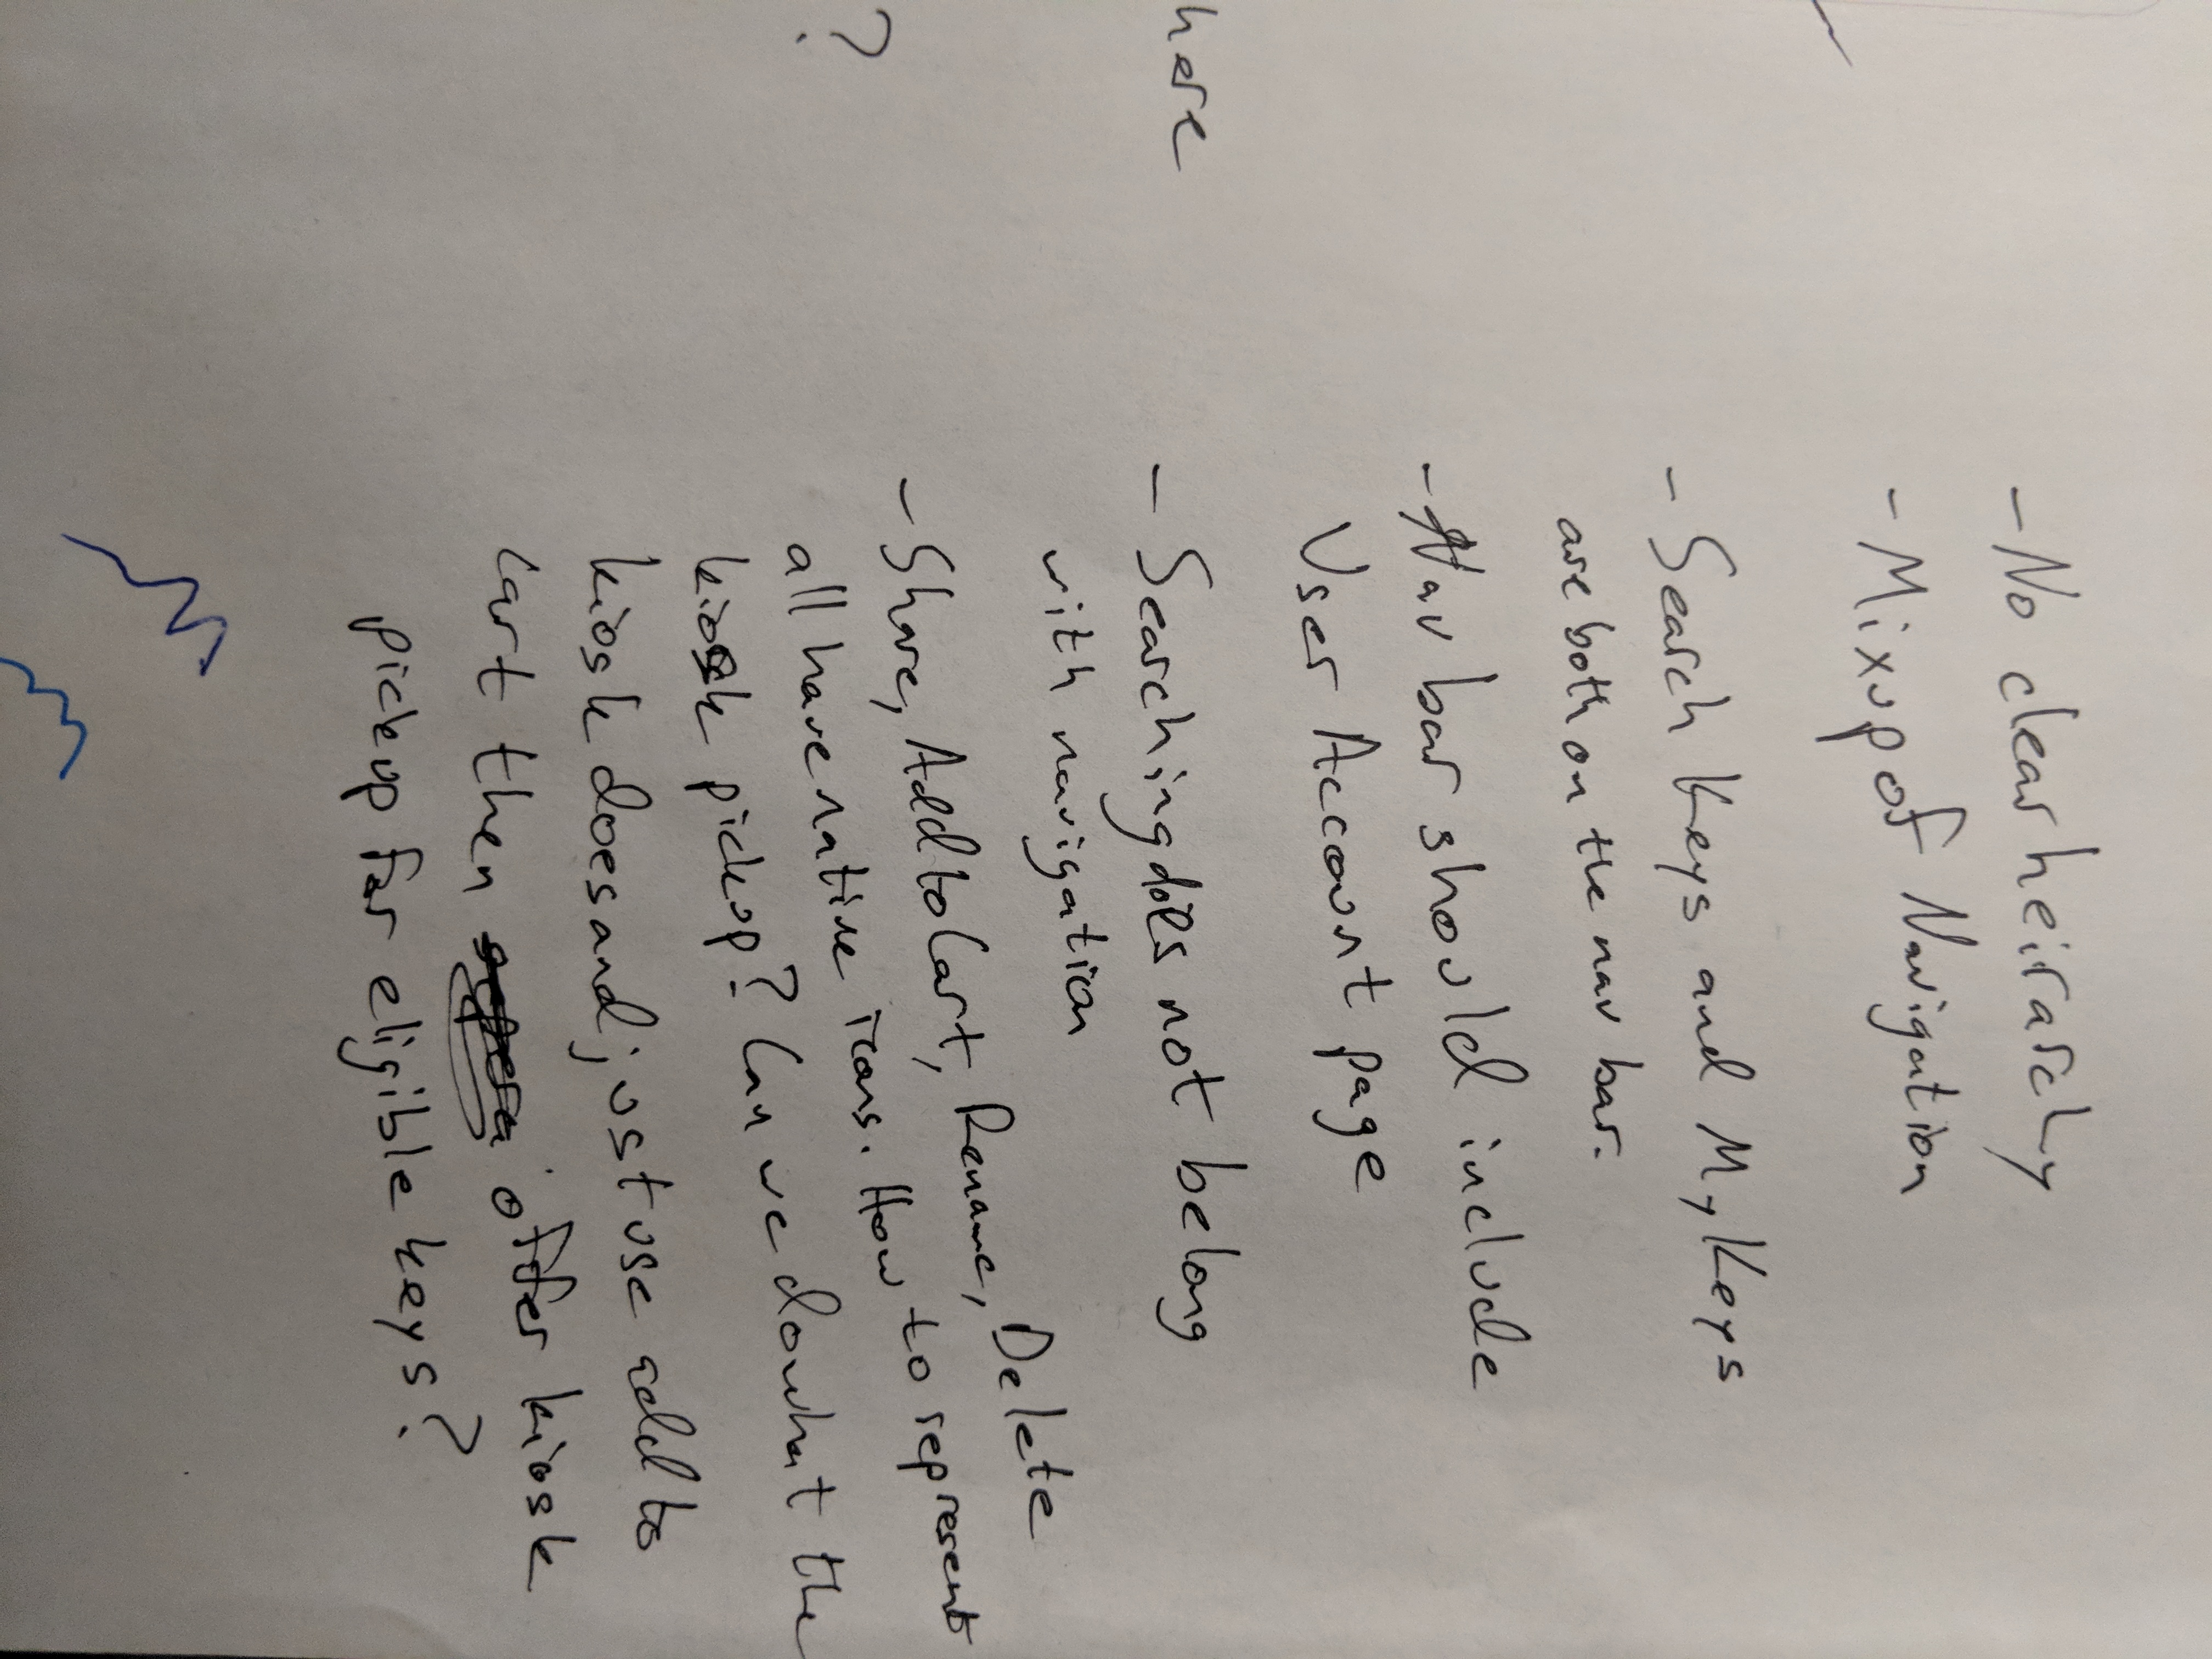 - No clear heirarchy
- Mixup of Navigation
- Search Keys and My Keys
are both on the nav bar.
- Nav bar should include
User Account page
here
- Searching does not belong
with navigation
?
- Share, Add to Cart, Rename, Delete
all have native icons. How to represent
kiosk pickup? Can we do what the
kiosk does and just use add to
cart then offer kiosk
pickup for eligible keys?